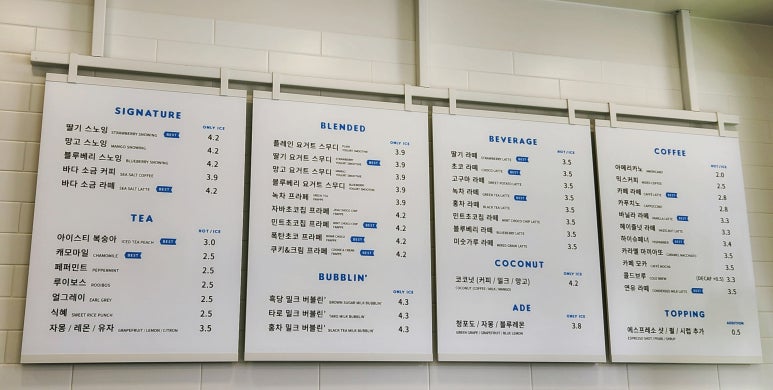 SIGNATURE
ONLY ICE
딸기 스노잉 STRAWBERRY SNOWING BEST 4.2
망고 스노잉 MANGO SNOWING 4.2
블루베리 스노잉 BLUEBERRY SNOWING 4.2
바다 소금 커피 SEA SALT COFFEE 3.9
바다 소금 라떼 SEA SALT LATTE BEST 4.2
TEA
HOT / ICE
아이스티 복숭아 ICED TEA PEACH BEST 3.0
캐모마일 CHAMOMILE BEST 2.5
페퍼민트 PEPPERMINT 2.5
루이보스 ROOIBOS 2.5
얼그레이 EARL GREY 2.5
식혜 SWEET RICE PUNCH 2.5
자몽 / 레몬 / 유자 GRAPEFRUIT / LEMON / CITRON 3.5
BLENDED
ONLY ICE
플레인 요거트 스무디 PLAIN YOGURT SMOOTHIE 3.9
딸기 요거트 스무디 STRAWBERRY YOGURT SMOOTHIE BEST 3.9
망고 요거트 스무디 MANGO YOGURT SMOOTHIE 3.9
블루베리 요거트 스무디 BLUEBERRY YOGURT SMOOTHIE 3.9
녹차 프라페 GREEN TEA FRAPPE 3.9
자바초코칩 프라페 JAVA CHOCO CHIP FRAPPE 4.2
민트초코칩 프라페 MINT CHOCO CHIP FRAPPE BEST 4.2
폭탄초코 프라페 FRAPPE 4.2
쿠키&크림 프라페 COOKIE & CREAM FRAPPE BEST 4.2
BUBBLIN'
ONLY ICE
흑당 밀크 버블린' BROWN SUGAR MILK BUBBLIN' 4.3
타로 밀크 버블린' TARO MILK BUBBLIN' 4.3
홍차 밀크 버블린' BLACK TEA MILK BUBBLIN' 4.3
BEVERAGE
HOT / ICE
딸기 라떼 STRAWBERRY LATTE BEST 3.5
초코 라떼 CHOCO LATTE BEST 3.5
고구마 라떼 SWEET POTATO LATTE 3.5
녹차 라떼 GREEN TEA LATTE BEST 3.5
홍차 라떼 BLACK TEA LATTE 3.5
민트초코칩 라떼 MINT CHOCO CHIP LATTE 3.5
블루베리 라떼 BLUEBERRY LATTE 3.5
미숫가루 라떼 MIXED GRAIN LATTE 3.5
COCONUT
ONLY ICE
코코넛 (커피 / 밀크 / 망고) 4.2
COCONUT (COFFEE / MILK / MANGO)
ADE
ONLY ICE
청포도 / 자몽 / 블루레몬 3.8
GREEN GRAPE / GRAPEFRUIT / BLUE LEMON
COFFEE
HOT / ICE
아메리카노 AMERICANO 2.0
믹스커피 MIXED COFFEE 2.5
카페 라떼 CAFE LATTE BEST 2.8
카푸치노 CAPPUCCINO 2.8
바닐라 라떼 VANILLA LATTE BEST 3.3
헤이즐넛 라떼 HAZELNUT LATTE 3.3
하이슈페너 BEST 3.4
카라멜 마끼아또 CARAMEL MACCHIATO 3.5
카페 모카 CAFFE MOCHA 3.5
콜드브루 COLD BREW (DECAF +0.5) 3.3
연유 라떼 CONDENSED MILK LATTE BEST 3.5
TOPPING
ADDITION
에스프레소 샷 / 펄 / 시럽 추가 0.5
ESPRESSO SHOT / PEARL / SYRUP